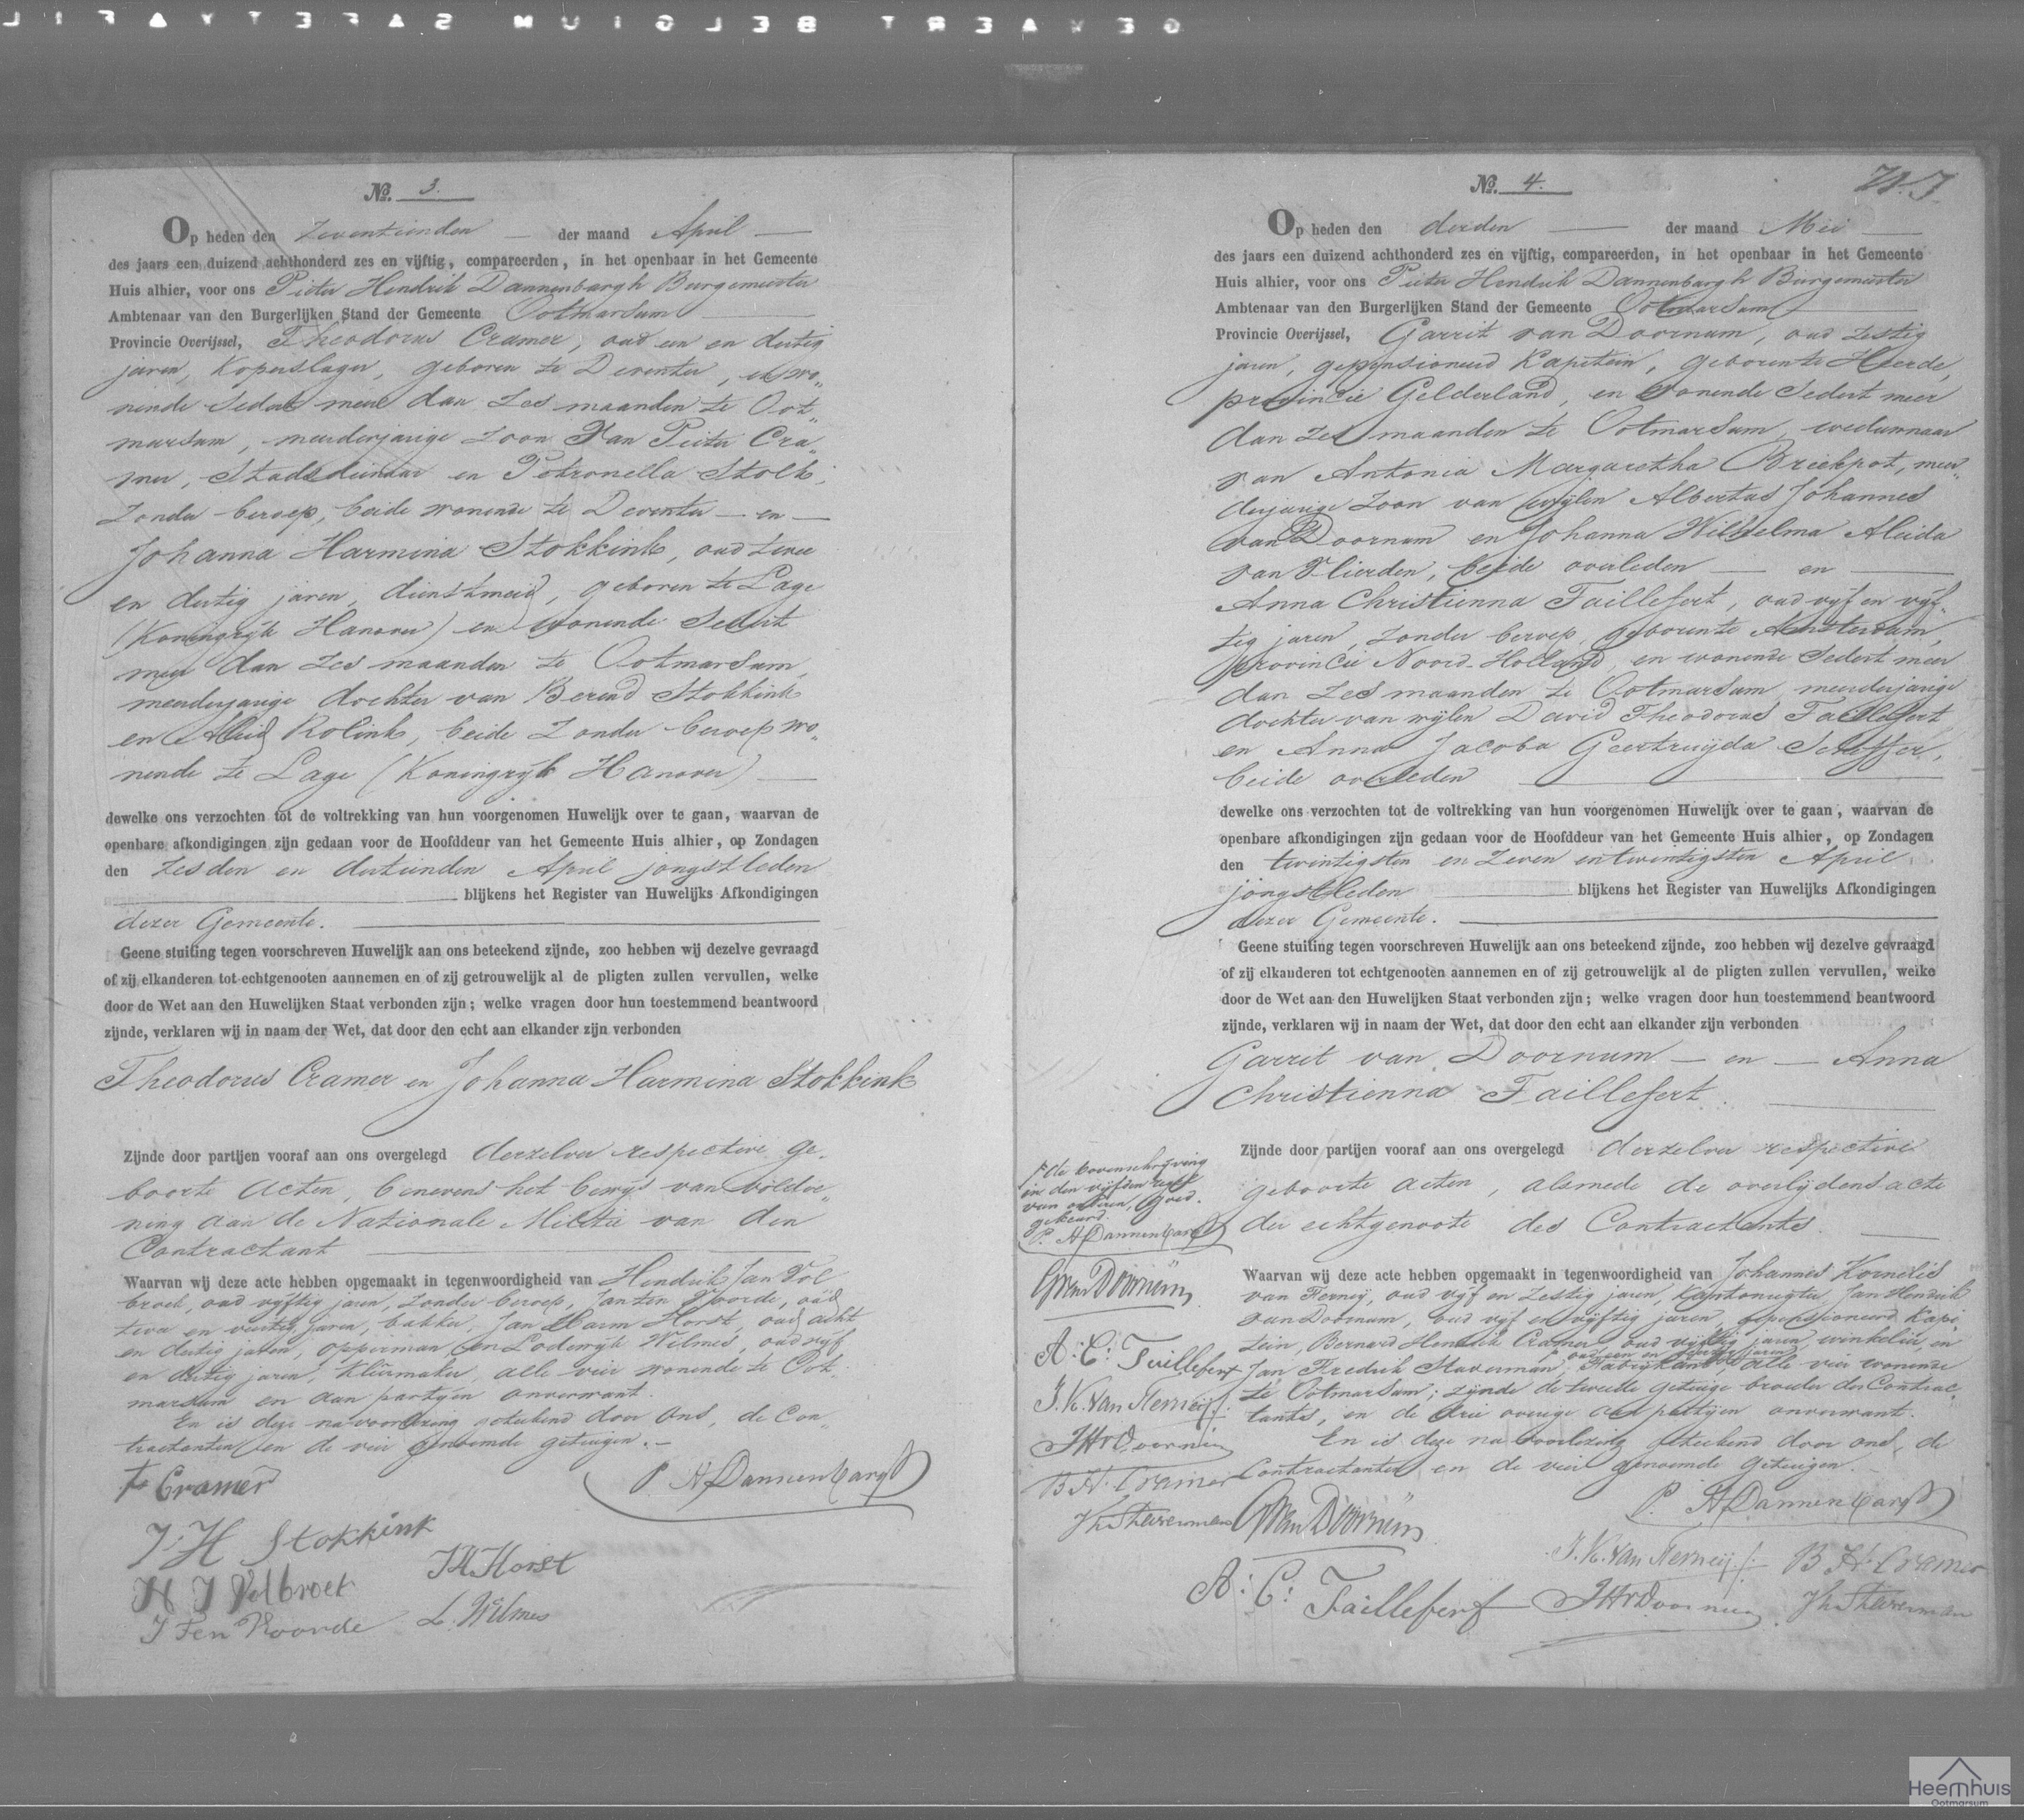 GEVAERT BELGIUM SAFETY FIL
No. 3.
Op heden den zeventienden der maand April
des jaars een duizend achthonderd zes en vijftig, compareerden, in het openbaar in het Gemeente
Huis alhier, voor ons Pieter Hendrik Dannenbargh Burgemeester
Ambtenaar van den Burgerlijken Stand der Gemeente Ootmarsum
Provincie Overijssel, Theodorus Cramer, oud een en dertig
jaren, Koperslager, geboren te Deventer, en wo„
nende sedert meer dan zes maanden te Oot„
marsum, meerderjarige zoon van Pieter Cra„
mer, Stadsdienaar en Petronella Stolk,
zonder beroep, beide wonende te Deventer — en —
Johanna Harmina Stokkink, oud twee
en dertig jaren, dienstmeid, geboren te Lage
(Koningrijk Hanover) en wonende sedert
meer dan zes maanden te Ootmarsum,
meerderjarige dochter van Berend Stokkink
en Aleid Rolink, beide zonder beroep wo„
nende te Lage (Koningrijk Hanover)
dewelke ons verzochten tot de voltrekking van hun voorgenomen Huwelijk over te gaan, waarvan de
openbare afkondigingen zijn gedaan voor de Hoofddeur van het Gemeente Huis alhier, op Zondagen
den zesden en dertienden April jongstleden
blijkens het Register van Huwelijks Afkondigingen
dezer Gemeente.
Geene stuiting tegen voorschreven Huwelijk aan ons beteekend zijnde, zoo hebben wij dezelve gevraagd
of zij elkanderen tot echtgenooten aannemen en of zij getrouwelijk al de pligten zullen vervullen, welke
door de Wet aan den Huwelijken Staat verbonden zijn; welke vragen door hun toestemmend beantwoord
zijnde, verklaren wij in naam der Wet, dat door den echt aan elkander zijn verbonden
Theodorus Cramer en Johanna Harmina Stokkink
Zijnde door partijen vooraf aan ons overgelegd derzelver respective ge„
boorte acten, benevens het bewijs van voldoe„
ning aan de Nationale Militie van den
Contractant
Waarvan wij deze acte hebben opgemaakt in tegenwoordigheid van Hendrik Jan Vol
broek, oud vijftig jaren, zonder beroep, Jan ten Voorde, oud
twee en veertig jaren, bakker, Jan Harm Horst, oud acht
en dertig jaren, opperman en Lodewijk Wilmes, oud vijf
en dertig jaren, Kleermaker, alle vier wonende te Oot„
marsum en aan partijen onverwant.
En is deze na voorlezing geteekend door ons, de Con„
tractanten en de vier genoemde getuigen.
Th Cramer
P. H Dannenbargh
J. H Stokkink
H J Volbroek
J H Horst
J Ten Voorde
L. Wilmes
No. 4.
Op heden den derden der maand Mei
des jaars een duizend achthonderd zes en vijftig, compareerden, in het openbaar in het Gemeente
Huis alhier, voor ons Pieter Hendrik Dannenbargh Burgemeester
Ambtenaar van den Burgerlijken Stand der Gemeente Ootmarsum
Provincie Overijssel, Garrit van Doornum, oud zestig
jaren, gepensioneerd Kapitein, geboren te Heerde,
provincie Gelderland, en wonende sedert meer
dan zes maanden te Ootmarsum, weduwnaar
van Antonia Margaretha Briekpot, meer„
derjarige zoon van wijlen Albertus Johannes
van Doornum en Johanna Wilhelma Aleida
van Vlierden, beide overleden — en —
Anna Christienna Taillefert, oud vijf en vijf„
tig jaren, zonder beroep, geboren te Amsterdam,
provincie Noord-Holland, en wonende sedert meer
dan zes maanden te Ootmarsum, meerderjarige
dochter van wijlen David Theodorus Taillefert
en Anna Jacoba Geertruijda Scheffer,
beide overleden
dewelke ons verzochten tot de voltrekking van hun voorgenomen Huwelijk over te gaan, waarvan de
openbare afkondigingen zijn gedaan voor de Hoofddeur van het Gemeente Huis alhier, op Zondagen
den twintigsten en zeven en twintigsten April
jongstleden blijkens het Register van Huwelijks Afkondigingen
dezer Gemeente.
Geene stuiting tegen voorschreven Huwelijk aan ons beteekend zijnde, zoo hebben wij dezelve gevraagd
of zij elkanderen tot echtgenooten aannemen en of zij getrouwelijk al de pligten zullen vervullen, welke
door de Wet aan den Huwelijken Staat verbonden zijn; welke vragen door hun toestemmend beantwoord
zijnde, verklaren wij in naam der Wet, dat door den echt aan elkander zijn verbonden
Garrit van Doornum — en — Anna
Christienna Taillefert.
Zijnde door partijen vooraf aan ons overgelegd derzelver respective
geboorte acten, alsmede de overlijdens acte
der echtgenoote des Contractants.
Waarvan wij deze acte hebben opgemaakt in tegenwoordigheid van Johannes Kornelis
van Rerneij, oud vijf en zestig jaren, Kantonregter, Jan Hendrik
van Doornum, oud vijf en vijftig jaren, gepensioneerd Kapi„
tein, Bernard Hendrik Cramer oud vijftig jaren, winkelier, en
Jan Fredrik Staverman, oud een en veertig jaren, Fabrijkant, alle vier wonende
te Ootmarsum; zijnde de tweede getuige broeder des Contrac„
tants, en de drie overige aan partijen onverwant.
En is deze na voorlezing geteekend door ons, de
Contractanten en de vier genoemde getuigen.
de bovenschrijving
in den vijfden regel
van onderen, goed„
gekeurd.
P. H Dannenbargh
G van Doornum
A: C: Taillefert
J. K. van Rerneij
J H v Doornum
B. H. Cramer
P. H Dannenbargh
G van Doornum
J. K. van Rerneij
B H. Cramer
A: C: Taillefert
J H v Doornum
Heemhuis
Ootmarsum